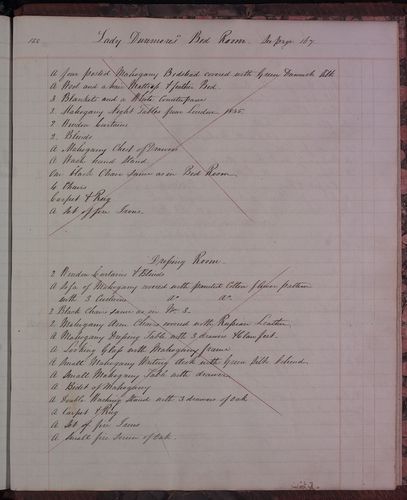 120 Lady Dunmore's Bed Room. See page 167
A four posted Mahogany Bedstead covered with Green Damask Silk
A Wool and a hair Mattrass & feather Bed.
3 Blankets and a White Counterpane
3 Mahogany Night Tables from London 1835.
2 Window Curtains
2 Blinds
A Mahogany Chest of Drawers
A Wash hand Stand
One black Chair same as in Bed Room
4 Chairs
Carpet & Rug
A Set of fire Irons.
Dressing Room
2 Window Curtains & Blinds
A Sofa of Mahogany covered with printed Cotton flower pattern
with 3 Cushions do. do.
2 Black Chairs same as in No. 3.
2 Mahogany Arm Chairs covered with Russian Leather
A Mahogany Dressing Table with 3 drawers &
A Looking Glass with Mahogany frame
A Small Mahogany Writing desk with Green Silk
A Small Mahogany Table with drawer
A Bidet of Mahogany
A Double Washing Stand with 3 drawers of Oak
A Carpet & Rug
A Set of fire Irons
A Small fire Screen of Oak.